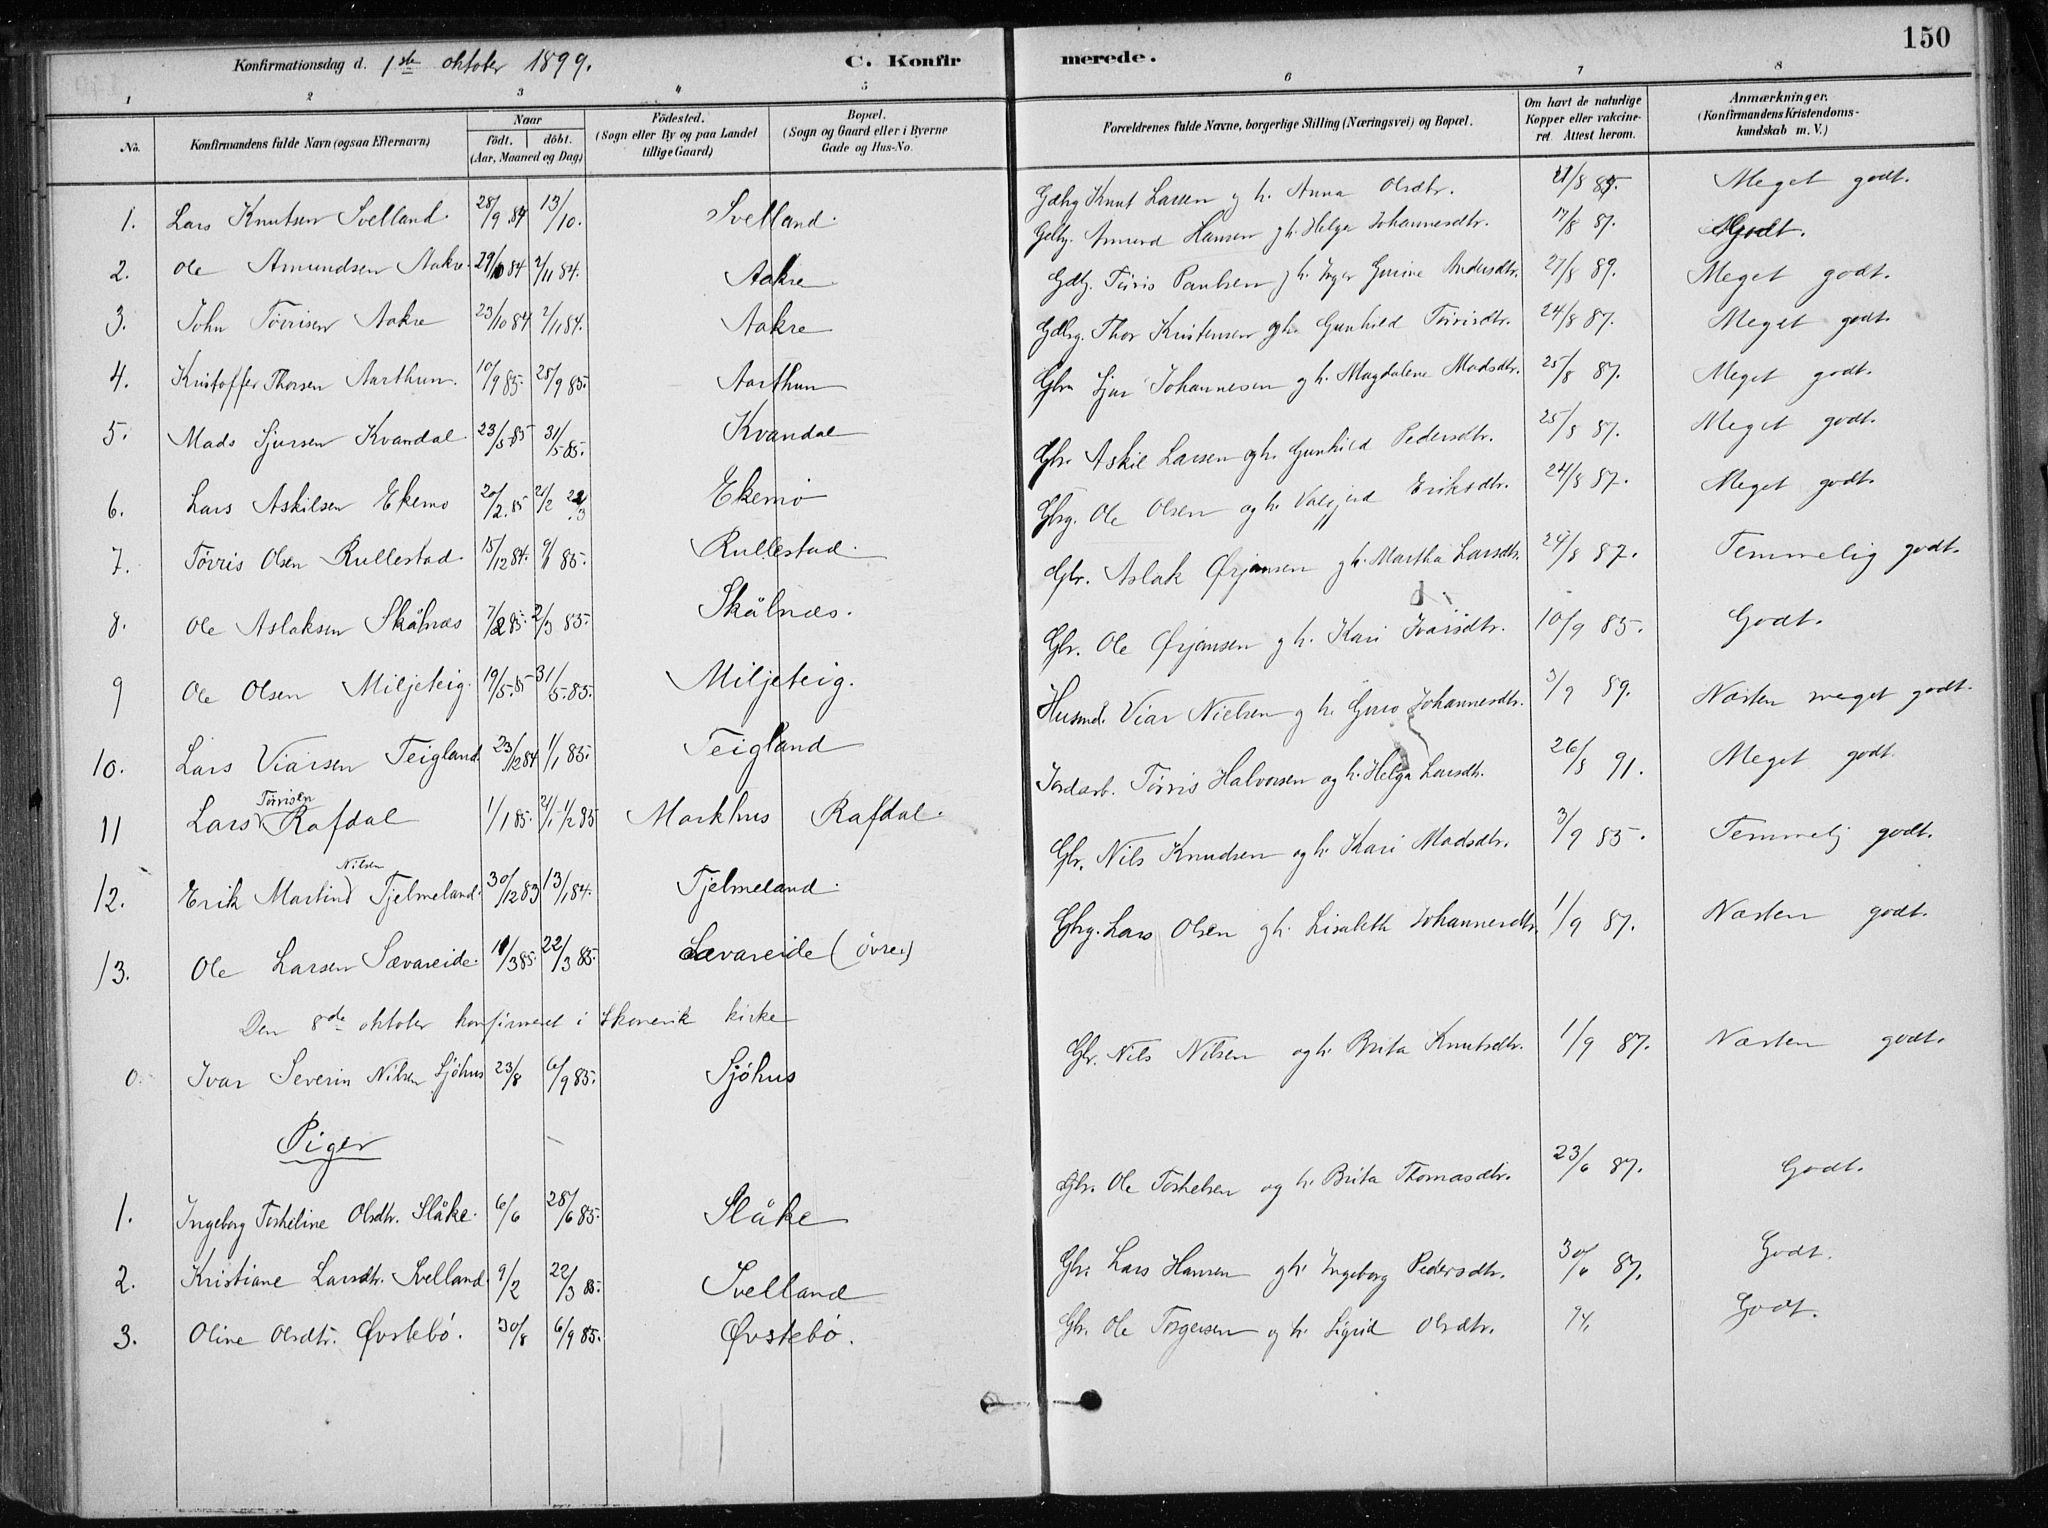 150
Konfirmationsdag d. 1ste oktober 1899. C. Konfirmerede.
1 2 3 4 5 6 7 8
No. Konfirmandens fulde Navn (ogsaa Efternavn) Naar født. døbt. (Aar, Maaned og Dag) Fødested. (Sogn eller By og paa Landet tillige Gaard) Bopæl. (Sogn og Gaard eller i Byerne Gade og Hus-No. Forældrenes fulde Navne, borgerlige Stilling (Næringsvei) og Bopæl. Om havt de naturlige Kopper eller vakcineret. Attest herom. Anmærkninger. (Konfirmandens Kristendomskundskab m. V.)
1. Lars Knutsen Svelland. 28/9 84 13/10. Svelland. Gdbrg Knut Larsen g h. Anna Olsdtr. 21/8 85. Meget godt.
2. Ole Amundsen Aakre. 29/10 84 2/11 84. Aakre Gdbg. Amund Hansen g h. Helga Johannesdtr. 17/8 87. Godt.
3. John Tørrisen Aakre 23/10 84 2/11 84. Aakre Gdbg. Tørris Paulsen g h. Inger Gurine Andersdtr. 27/8 89. Meget godt.
4. Kristoffer Thorsen Aarthun. 10/9 85. 25/9 85. Aarthun Gdbrg. Thor Kristensen og h. Gunhild Tørrisdtr. 24/8 87. Meget godt.
5. Mads Sjursen Kvandal 23/5 85 31/5 85. Kvandal Gbr. Sjur Johannesen g h. Magdalene Madsdtr. 25/8 87. Meget godt.
6. Lars Askilsen Ekemo 20/2 85 Ekemo Gbr. Askil Larsen og h. Gunhild Pedersdtr. 25/8 87. Meget godt.
7. Tørris Olsen Rullestad. 15/12 84. 85. Rullestad. Gbrg. Ole Olsen og h. Valgjerd Eriksdtr. 24/8 87. Meget godt.
8. Ole Aslaksen Skålnæs 7/2 85. 2/3 85. Skålnæs. Gbr. Aslak Ørjansen g h. Martha Larsdtr. 24/8 87. Temmelig godt.
9 Ole Olsen Miljeteig. 19/5 85 31/5 85. Miljeteig. Gbr. Ole Ørjansen g h. Kari Ivarsdtr. 10/9 85. Godt.
10. Lars Viarsen Teigland. 23/12 84 1/1 85. Teigland Husmd. Viar Nielsen g h. Guro Johannesdtr. 3/9 89. Næsten meget godt.
11 Lars Tørrisen Rafdal 1/1 85. 2/1 1/2 85 Markhus Rafdal. Jordarb. Tørris Halvorsen og h. Helga Larsdtr. 26/8 91. Meget godt.
12. Erik Martin Nilsen Tjelmeland. 30/12 83 13/1 84. Tjelmeland. Gbr. Nils Knudsen og h. Kari Madsdtr. 3/9 85. Temmelig godt.
13. Ole Larsen Sævareide. 11/3 85. 22/3 85. Sævareide (øvre) Gbrg. Lars Olsen g h. Lisabeth Johannesdtr. 1/9 87. Næsten godt.
Den 8de oktober konfirmeret i Skonevik kirke
0. Ivar Severin Nilsen Sjöhus 23/8 6/9 85. Sjöhus Gbr. Nils Nilsen og h. Brita Knutsdtr. 1/9 87. Næsten godt.
Piger
1. Ingeborg Torkeline Olsdtr. Slåke. 6/6 28/6 85. Slåke Gbr. Ole Torkelsen og h. Brita Thomasdtr. 23/6 87. Godt.
2. Kristiane Larsdtr. Svelland 9/2 22/3 85. Svelland Gbr. Lars Hansen g h. Ingeborg Pedersdtr. 30/6 87. Godt.
3. Oline Olsdtr. Øvstebö. 30/8 6/9 85. Øvstebö. Gbr. Ole Torgersen og h. Sigrid Olsdtr. 94. Godt.